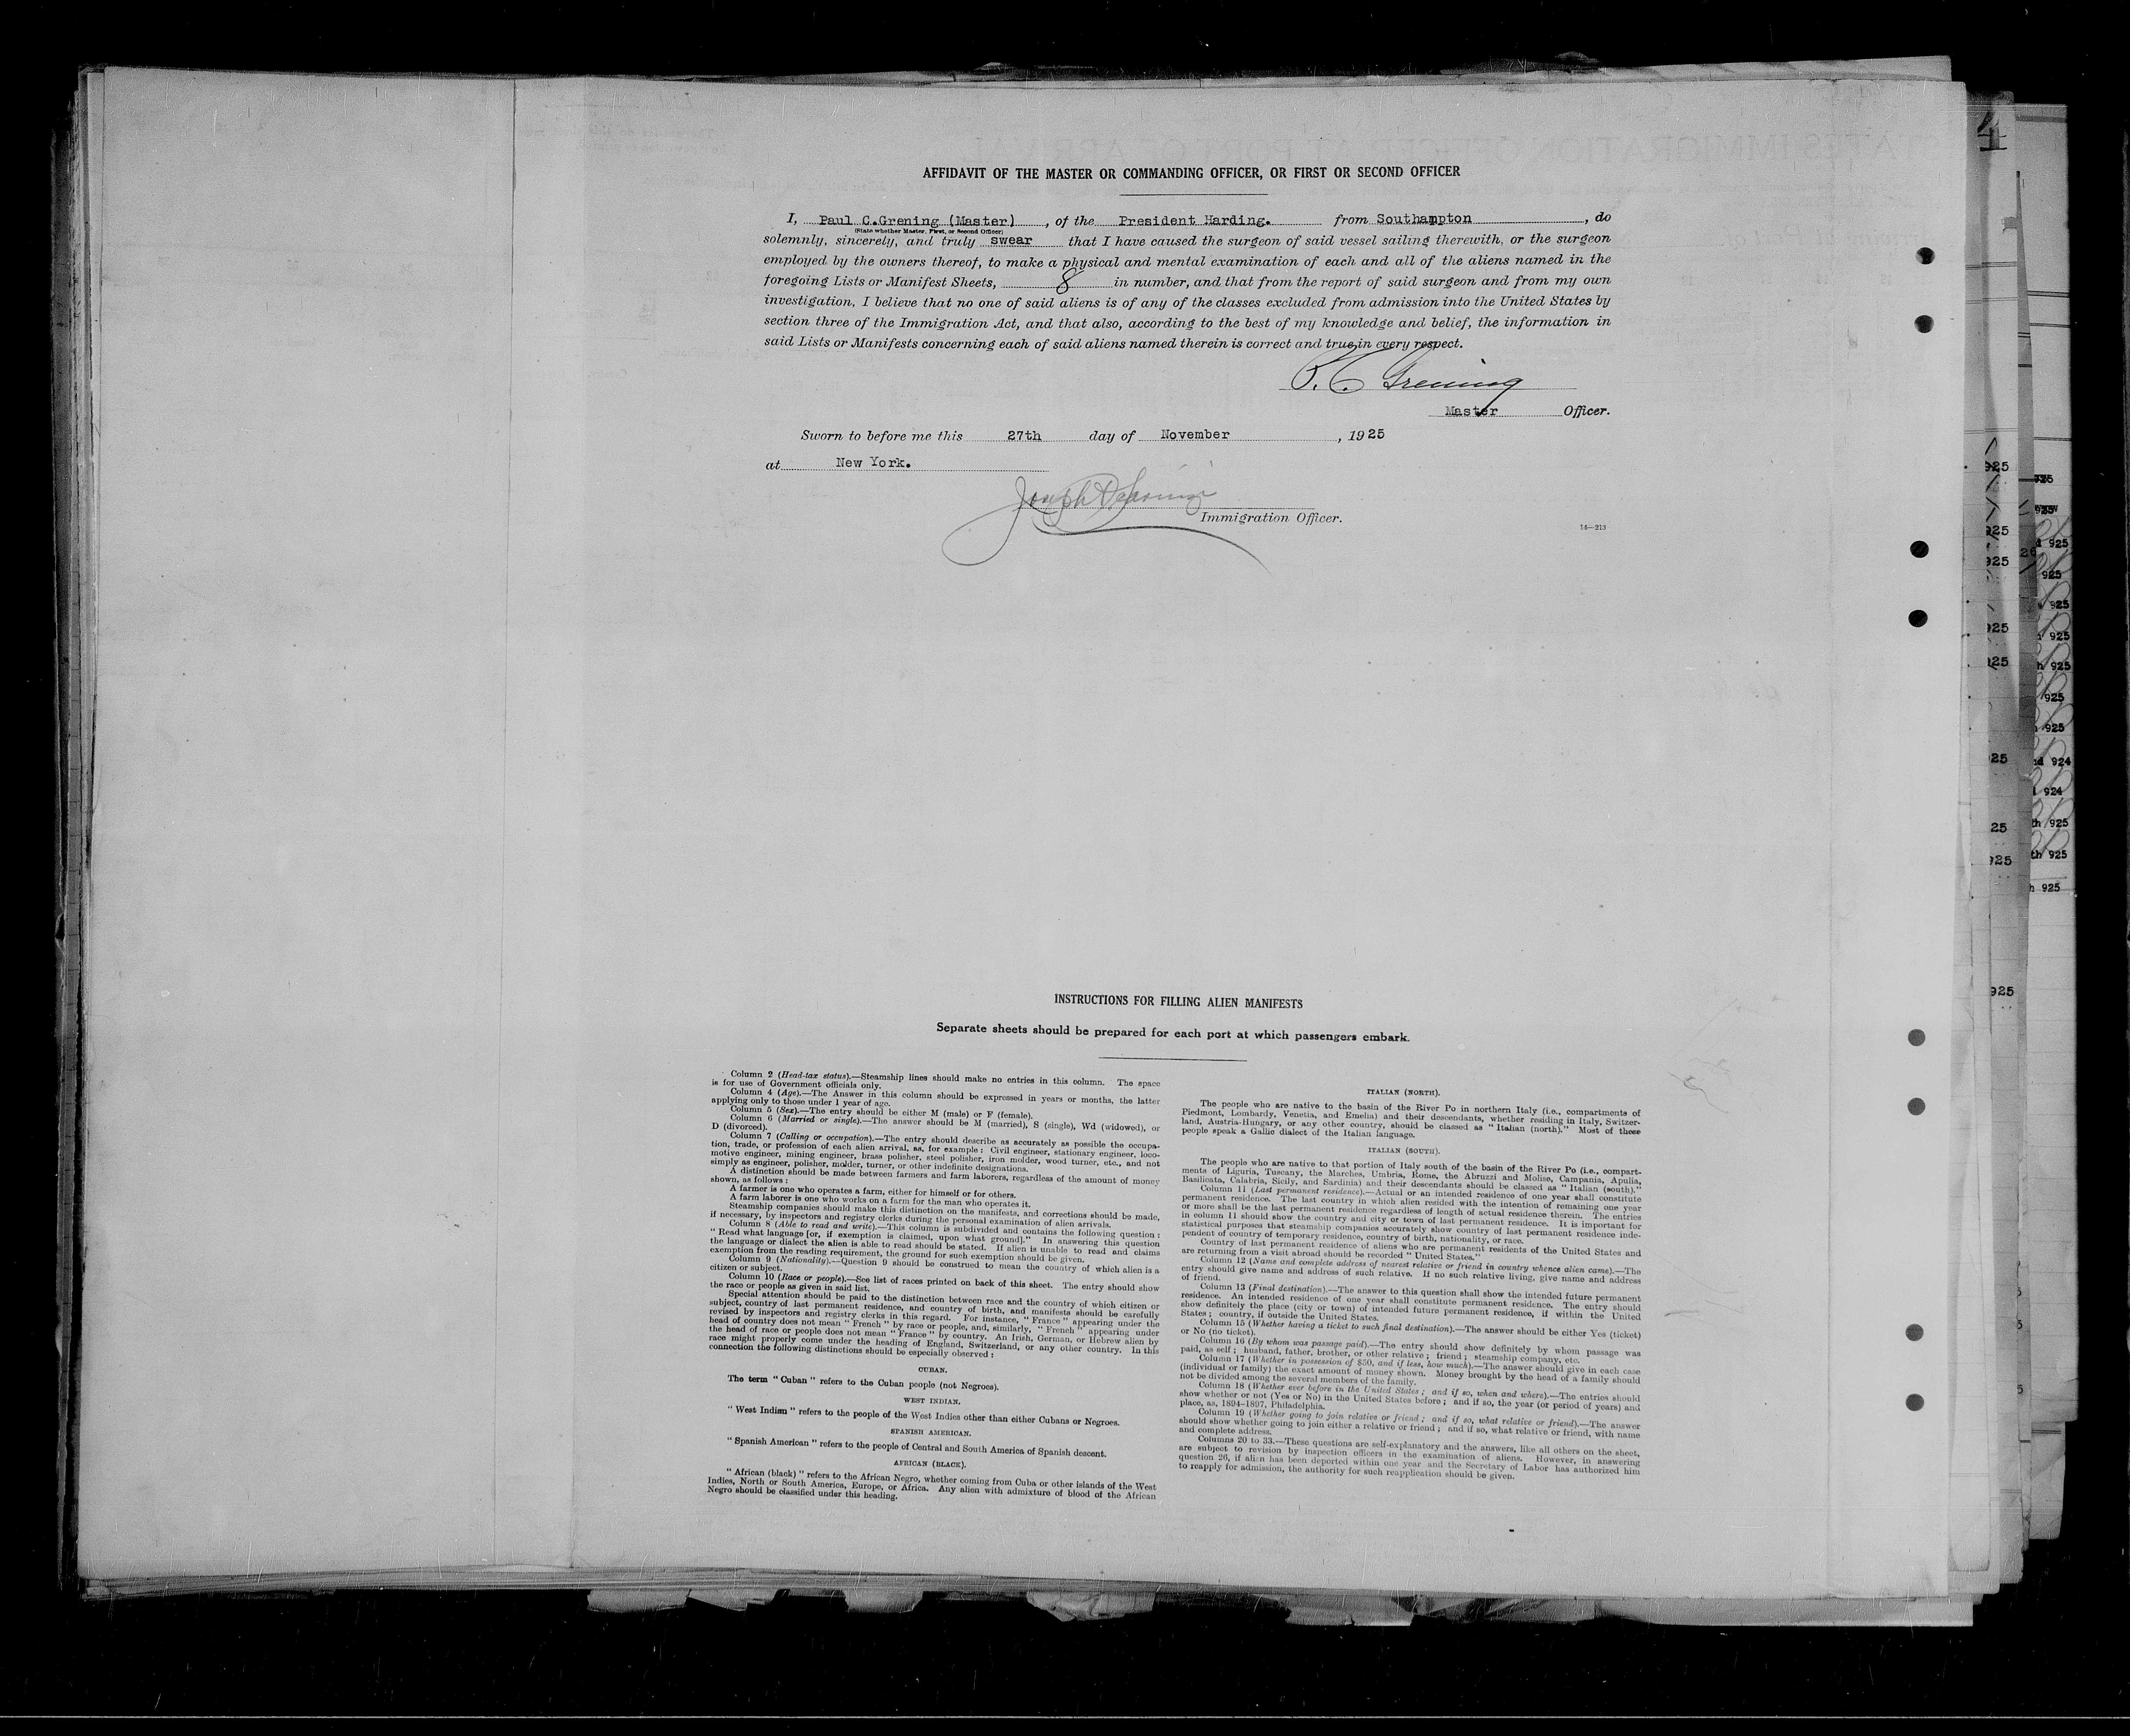 AFFIDAVIT OF THE MASTER OR COMMANDING OFFICER, OR FIRST OR SECOND OFFICER
I, Paul C.Grening (Master), of the President Harding. from Southampton, do
(State whether Master, First, or Second Officer)
solemnly, sincerely, and truly swear that I have caused the surgeon of said vessel sailing therewith, or the surgeon
employed by the owners thereof, to make a physical and mental examination of each and all of the aliens named in the
foregoing Lists or Manifest Sheets, 8 in number, and that from the report of said surgeon and from my own
investigation, I believe that no one of said aliens is of any of the classes excluded from admission into the United States by
section three of the Immigration Act, and that also, according to the best of my knowledge and belief, the information in
said Lists or Manifests concerning each of said aliens named therein is correct and true in every respect.
P. C. Grening
Master Officer.
Sworn to before me this 27th day of November, 1925
at New York.
Joseph
Immigration Officer.
14—213
INSTRUCTIONS FOR FILLING ALIEN MANIFESTS
Separate sheets should be prepared for each port at which passengers embark.
Column 2 (Head-tax status).—Steamship lines should make no entries in this column. The space
is for use of Government officials only.
Column 4 (Age).—The Answer in this column should be expressed in years or months, the latter
applying only to those under 1 year of age.
Column 5 (Sex).—The entry should be either M (male) or F (female).
Column 6 (Married or single).—The answer should be M (married), S (single), Wd (widowed), or
D (divorced).
Column 7 (Calling or occupation).—The entry should describe as accurately as possible the occupa-
tion, trade, or profession of each alien arrival, as, for example: Civil engineer, stationary engineer, loco-
motive engineer, mining engineer, brass polisher, steel polisher, iron molder, wood turner, etc., and not
simply as engineer, polisher, molder, turner, or other indefinite designations.
A distinction should be made between farmers and farm laborers, regardless of the amount of money
shown, as follows:
A farmer is one who operates a farm, either for himself or for others.
A farm laborer is one who works on a farm for the man who operates it.
Steamship companies should make this distinction on the manifests, and corrections should be made,
if necessary, by inspectors and registry clerks during the personal examination of alien arrivals.
Column 8 (Able to read and write).—This column is subdivided and contains the following question:
"Read what language [or, if exemption is claimed, upon what ground]." In answering this question
the language or dialect the alien is able to read should be stated. If alien is unable to read and claims
exemption from the reading requirement, the ground for such exemption should be given.
Column 9 (Nationality).—Question 9 should be construed to mean the country of which alien is a
citizen or subject.
Column 10 (Race or people).—See list of races printed on back of this sheet. The entry should show
the race or people as given in said list.
Special attention should be paid to the distinction between race and the country of which citizen or
subject, country of last permanent residence, and country of birth, and manifests should be carefully
revised by inspectors and registry clerks in this regard. For instance, "France" appearing under the
head of country does not mean "French" by race or people, and, similarly, "French" appearing under
the head of race or people does not mean "France" by country. An Irish, German, or Hebrew alien by
race might properly come under the heading of England, Switzerland, or any other country. In this
connection the following distinctions should be especially observed:
CUBAN.
The term "Cuban" refers to the Cuban people (not Negroes).
WEST INDIAN.
"West Indian" refers to the people of the West Indies other than either Cubans or Negroes.
SPANISH AMERICAN.
"Spanish American" refers to the people of Central and South America of Spanish descent.
AFRICAN (BLACK).
"African (black)" refers to the African Negro, whether coming from Cuba or other islands of the West
Indies, North or South America, Europe, or Africa. Any alien with admixture of blood of the African
Negro should be classified under this heading.
ITALIAN (NORTH).
The people who are native to the basin of the River Po in northern Italy (i.e., compartments of
Piedmont, Lombardy, Venetia, and Emelia) and their descendants, whether residing in Italy, Switzer-
land, Austria-Hungary, or any other country, should be classed as "Italian (north)." Most of these
people speak a Gallic dialect of the Italian language.
ITALIAN (SOUTH).
The people who are native to that portion of Italy south of the basin of the River Po (i.e., compart-
ments of Liguria, Tuscany, the Marches, Umbria, Rome, the Abruzzi and Molise, Campania, Apulia,
Basilicata, Calabria, Sicily, and Sardinia) and their descendants should be classed as "Italian (south)."
Column 11 (Last permanent residence).—Actual or an intended residence of one year shall constitute
permanent residence. The last country in which alien resided with the intention of remaining one year
or more shall be the last permanent residence regardless of length of actual residence therein. The entries
in column 11 should show the country and city or town of last permanent residence. It is important for
statistical purposes that steamship companies accurately show country of last permanent residence inde-
pendent of country of temporary residence, country of birth, nationality, or race.
Country of last permanent residence of aliens who are permanent residents of the United States and
are returning from a visit abroad should be recorded "United States."
Column 12 (Name and complete address of nearest relative or friend in country whence alien came).—The
entry should give name and address of such relative. If no such relative living, give name and address
of friend.
Column 13 (Final destination).—The answer to this question shall show the intended future permanent
residence. An intended residence of one year shall constitute permanent residence. The entry should
show definitely the place (city or town) of intended future permanent residence, if within the United
States; country, if outside the United States.
Column 15 (Whether having a ticket to such final destination).—The answer should be either Yes (ticket)
or No (no ticket).
Column 16 (By whom was passage paid).—The entry should show definitely by whom passage was
paid, as self; husband, father, brother, or other relative; friend; steamship company, etc.
Column 17 (Whether in possession of $50, and if less, how much).—The answer should give in each case
(individual or family) the exact amount of money shown. Money brought by the head of a family should
not be divided among the several members of the family.
Column 18 (Whether ever before in the United States; and if so, when and where).—The entries should
show whether or not (Yes or No) in the United States before; and if so, the year (or period of years) and
place, as, 1894-1897, Philadelphia.
Column 19 (Whether going to join relative or friend; and if so, what relative or friend).—The answer
should show whether going to join either a relative or friend; and if so, what relative or friend, with name
and complete address.
Columns 20 to 33.—These questions are self-explanatory and the answers, like all others on the sheet,
are subject to revision by inspection officers in the examination of aliens. However, in answering
question 26, if alien has been deported within one year and the Secretary of Labor has authorized him
to reapply for admission, the authority for such reapplication should be given.